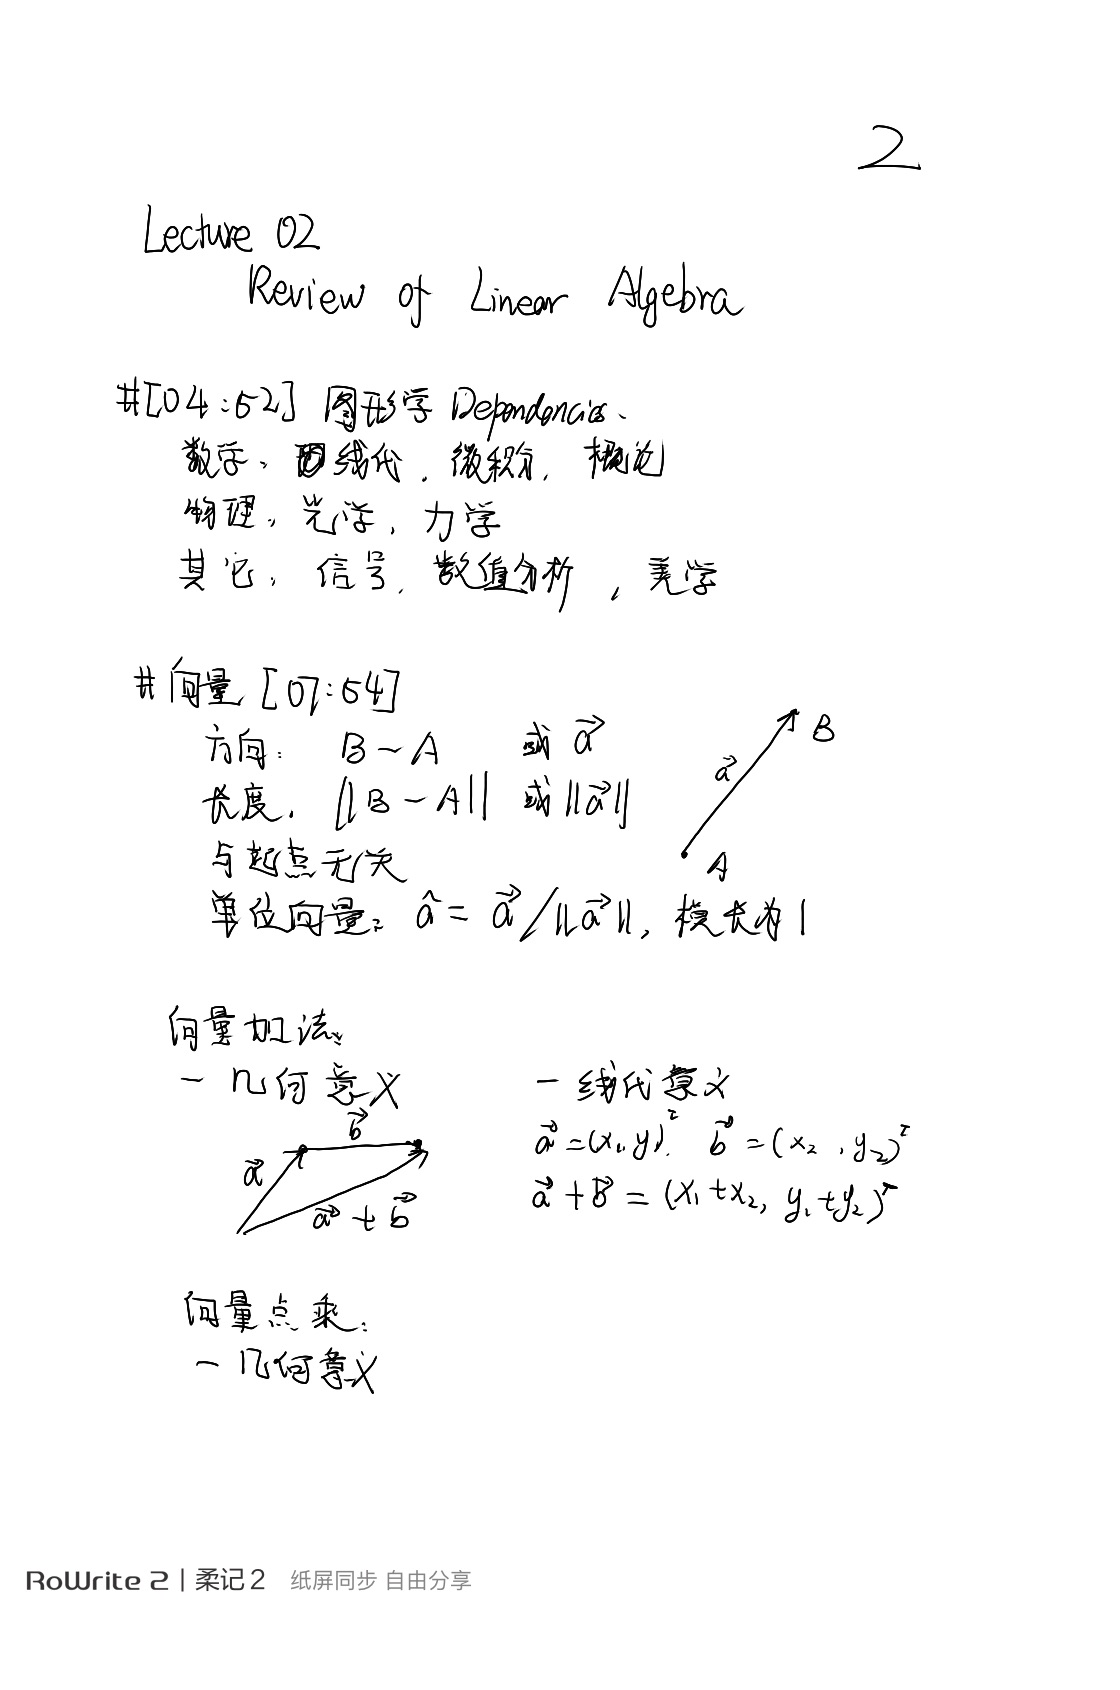 2
Lecture 02
Review of Linear Algebra
#[04:52] 图形学 Dependencies.
数学: 线代, 微积分, 概论
物理: 光学, 力学
其它: 信号, 数值分析, 美学
#向量 [07:54]
方向: B-A 或 a⃗
长度: ||B-A|| 或 ||a⃗||
与起点无关
单位向量: â = a⃗/||a⃗||, 模长为1
B
a⃗
A
向量加法:
- 几何意义
b⃗
a⃗
a⃗ + b⃗
- 线代意义
a⃗ = (x₁, y)ᵀ. b⃗ = (x₂, y₂)ᵀ
a⃗ + b⃗ = (x₁+x₂, y₁+y₂)ᵀ
向量点乘:
- 几何意义
RoWrite 2 | 柔记 2 纸屏同步 自由分享